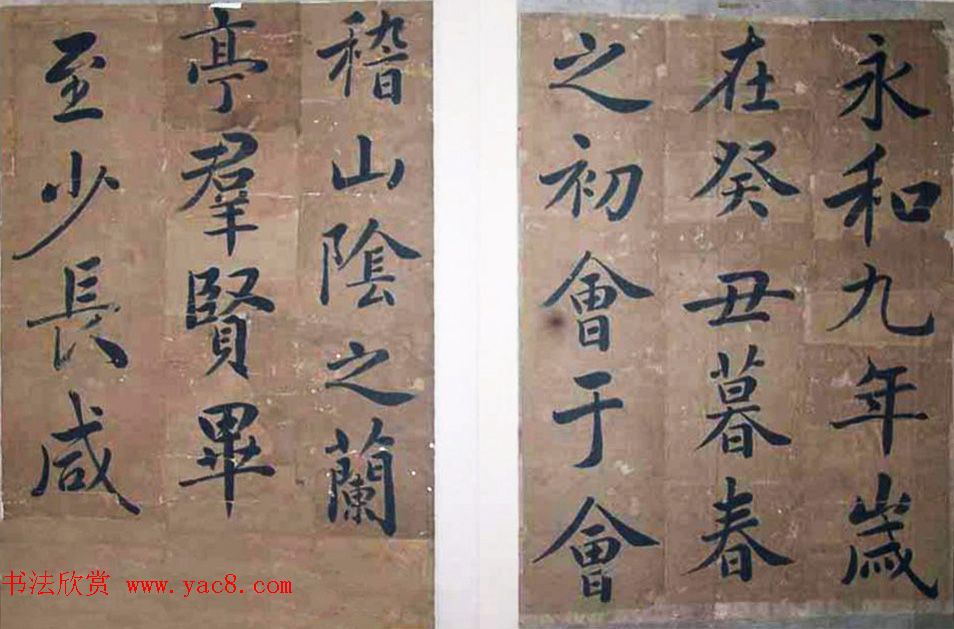 永和九年歲
在癸丑暮春
之初會于會
稽山陰之蘭
亭羣賢畢
至少長咸
书法欣赏 www.yac8.com